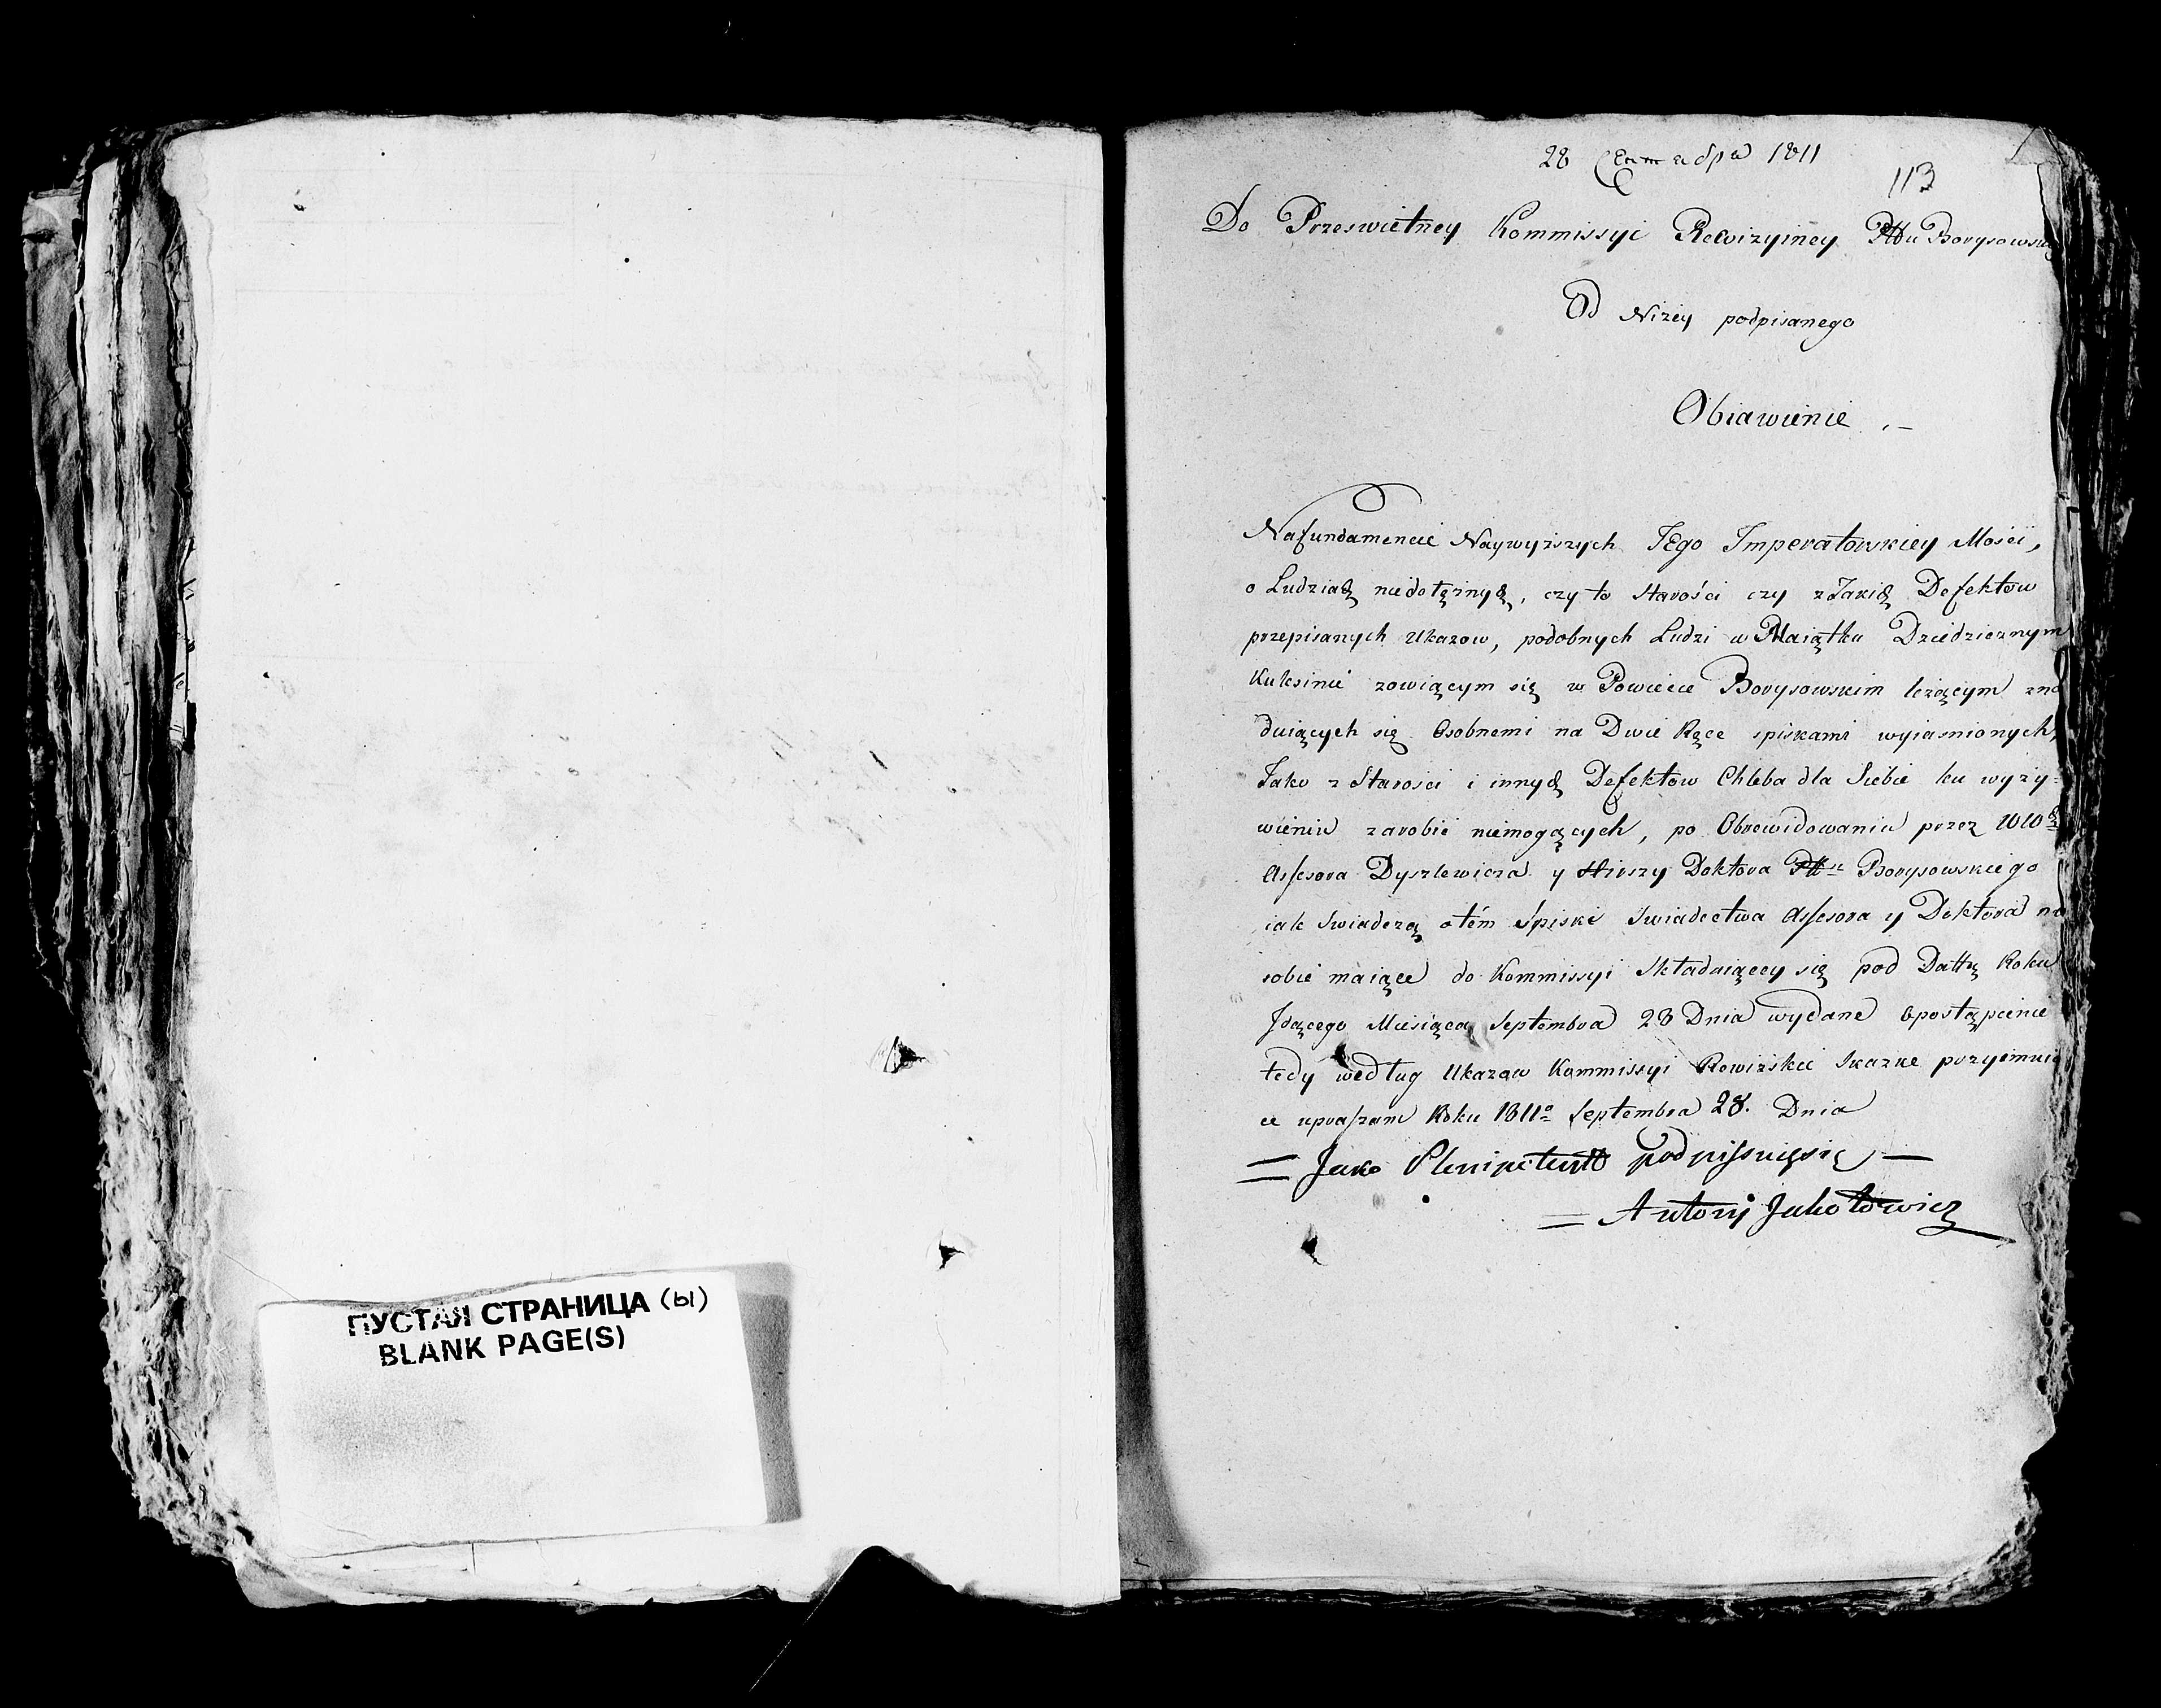 ПУСТАЯ СТРАНИЦА (ы)
BLANK PAGE(S)
28 Сентября 1811
113
Do Przeswietney Kommissyi Rewizyiney Pttu Borysowsk
Od Niżey podpisanego
Obiawienie .–
Na fundamencie Naywyższych JEgo Imperatorskiey Mości,
o Ludziach niedołężnych, czy to Starości czy z Jakich Defektow
przepisanych Ukazow, podobnych Ludzi w Maiątku Dziedzicznym
Kuksinie zowiącym się w Powiecie Borysowskim leżącym zna
duiących się Osobnemi na Dwie Ręce spiskami wyiasnionych,
Jako z Starosci i innych Defektow Chleba dla Siebie ku wyży=
wieniu zarobić niemogących, po Obrewidowaniu przez
Assesora Dyszlewicza y Hirszy Doktora Borysowskiego
iak swiadczą otém Spiski Swiadectwa Assesora y Doktora na
sobie maiące do Kommissyi Składaiącey się pod Dattą Roku
Idącego Miesiąca Septembra 28 Dnia wydane o postąpienie
tedy według Ukazow Kommissyi Rewizskie Skazke przyimuią
ce upraszam Roku 1811o Septembra 28. Dnia
= Jako Plenipotent podpisuięsię —
= Antoni Jakotowicz